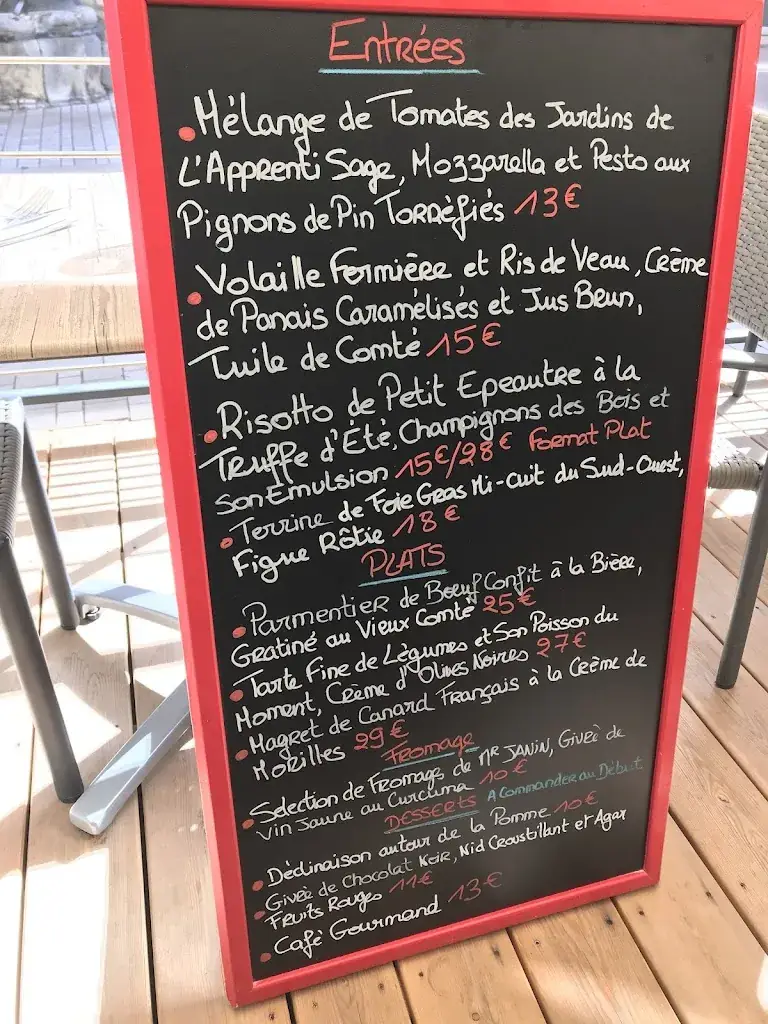 Entrées
Mélange de Tomates des Jardins de
L'Apprenti Sage, Mozzarella et Pesto aux
Pignons de Pin Torréfiés 13€
Volaille Fermière et Ris de Veau, Crème
de Panais Caramélisés et Jus Brun,
Tuile de Comté 15€
Risotto de Petit Epeautre à la
Truffe d'Été, Champignons des Bois et
Son Emulsion 15€/28€ Format Plat
Terrine de Foie Gras Mi-cuit du Sud-Ouest,
Figue Rôtie 18€
PLATS
Parmentier de Boeuf Confit à la Bière,
Gratiné au Vieux Comté 25€
Tarte Fine de Légumes et Son Poisson du
Moment, Crème d'Olives Noires 27€
Magret de Canard Français à la Crème de
Morilles 29€
Fromage
Selection de Fromage de Mr JANIN, Givré de
Vin Jaune au Curcuma 10€
DESSERTS A Commander au Début
Déclinaison autour de la Pomme 10€
Givré de Chocolat Noir, Nid Croustillant et Agar
Fruits Rouges 11€
Café Gourmand 13€